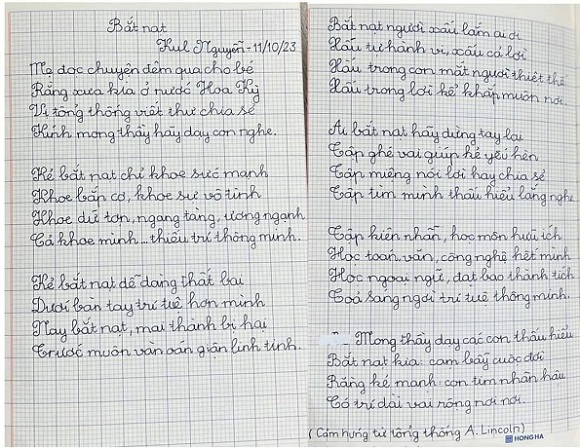 Bắt nạt
Kul Nguyễn - 11/10/23
Mẹ đọc chuyện đêm qua cho bé
Rằng xưa kia ở nước Hoa Kỳ
Vị tổng thống viết thư chia sẻ
Kính mong thầy hãy dạy con nghe.
Kẻ bắt nạt chỉ khoe sức mạnh
Khoe bắp cơ, khoe sự vô tình
Khoe dữ tợn, ngang tàng, ương ngạnh
Cả khoe mình... thiếu trí thông minh.
Kẻ bắt nạt dễ dàng thất bại
Dưới bàn tay trí tuệ hơn mình
Nay bắt nạt, mai thành bị hại
Trước muôn vàn oán giận linh tinh.
Bắt nạt người xấu lắm ai ơi
Xấu từ hành vi, xấu cả lời
Xấu trong con mắt người thiệt thế
Xấu trong lời kể khắp muôn nơi.
Ai bắt nạt hãy dừng tay lại
Tập ghé vai giúp kẻ yếu hèn
Tập miệng nói lời hay chia sẻ
Tập tim mình thấu hiểu lắng nghe
Tập kiên nhẫn, học môn hữu ích
Học toán văn, công nghệ hết mình
Học ngoại ngữ, đạt bao thành tích
Toả sáng ngời trí tuệ thông minh.
- Mong thầy dạy các con thấu hiểu
Bắt nạt kia: cạm bẫy cuộc đời
Rằng kẻ mạnh: con tim nhân hậu
Có trí dài vai rộng nơi nơi.
(Cảm hứng từ tổng thống A. Lincoln)
HONG HA